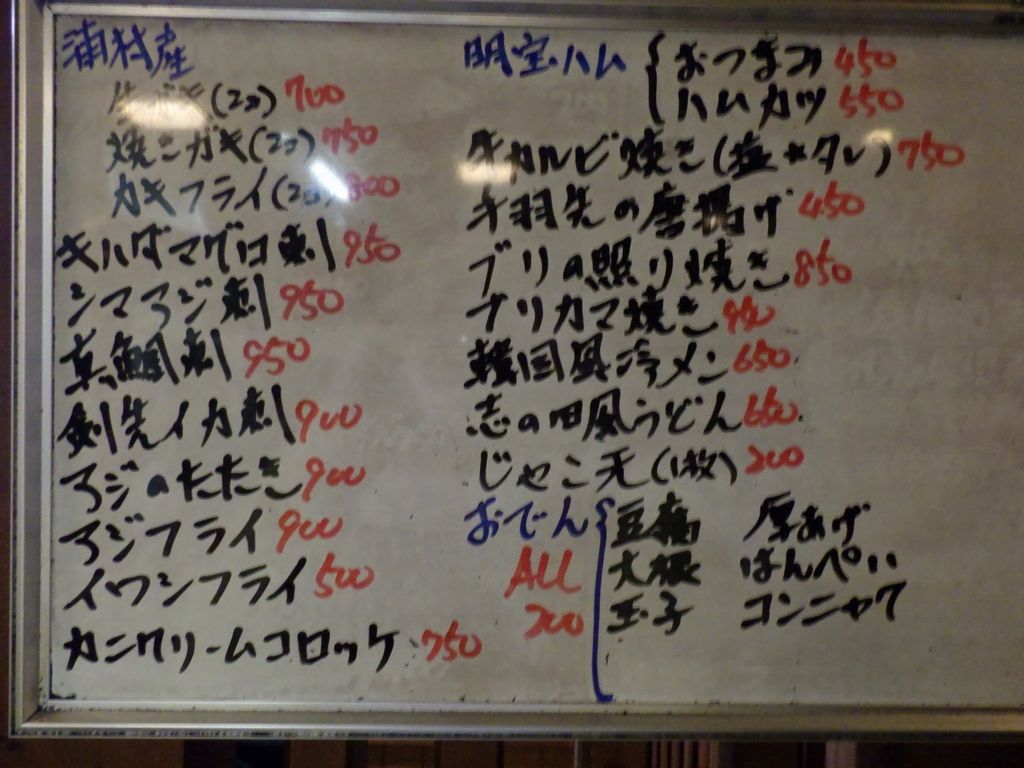 浦村産
生ガキ(2コ) 700
焼きガキ(2コ) 750
カキフライ(2コ) 800
キハダマグロ刺 950
シマアジ刺 950
真鯛刺 950
剣先イカ刺 900
アジのたたき 900
アジフライ 900
イワシフライ 500
カニクリームコロッケ 750
明宝ハム
おつまみ 450
ハムカツ 550
牛カルビ焼き(塩*タレ) 750
手羽先の唐揚げ 450
ブリの照り焼き 850
ブリカマ焼き
韓国風冷メン 650
志の田風うどん 650
じゃこ天(1枚) 200
おでん
ALL
200
豆腐 厚あげ
大根 はんぺい
玉子 コンニャク